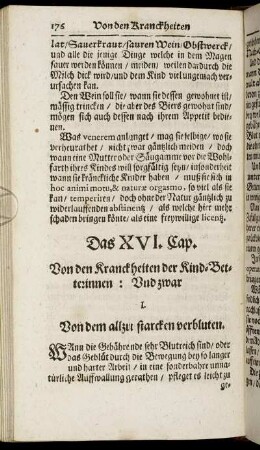 176 Von den Kranckheiten
lat/Sauerkraut/sauren Wein/Obstwerck/
und alle die jenige Dinge welche in dem Magen
sauer werden können/ meiden/ weilen dadurch die
Milch dick wird/und dem Kind viel ungemach ver-
ursachen kan.
Den Wein soll sie/ wann sie dessen gewohnet ist/
mässig trincken/ die aber des Biers gewohnt sind/
mögen sich auch dessen nach ihrem Appetit bedie-
nen.
Was venerem anlanget/ mag sie selbige/ wo sie
verheurathet/ nicht zwar gäntzlich meiden/ doch
wann eine Mutter oder Säugamme vor die Wohl-
farth ihres Kindes will sorgfältig seyn/insonderheit
wann sie kränckliche Kinder haben/ muß sie sich in
hoc animi motu, & naturæ orgasmo, so viel als sie
kan/ temperiren/ doch ohne der Natur gäntzlich zu
widerlauffenden abstinentz/ als welche hier mehr
schaden bringen könte/als eine freywillige licentz.
Das XVI. Cap.
Von den Kranckheiten der Kind-Bet-
terinnen: Und zwar
I.
Von dem allzu starcken verbluten.
Wann die Gebährende sehr Blutreich sind/ oder
das Geblüt durch die Bewegung bey so langer
und harter Arbeit/ in eine sonderbahre unna-
türliche Auffwallung gerathen/ pfleget es leicht zu
ge-